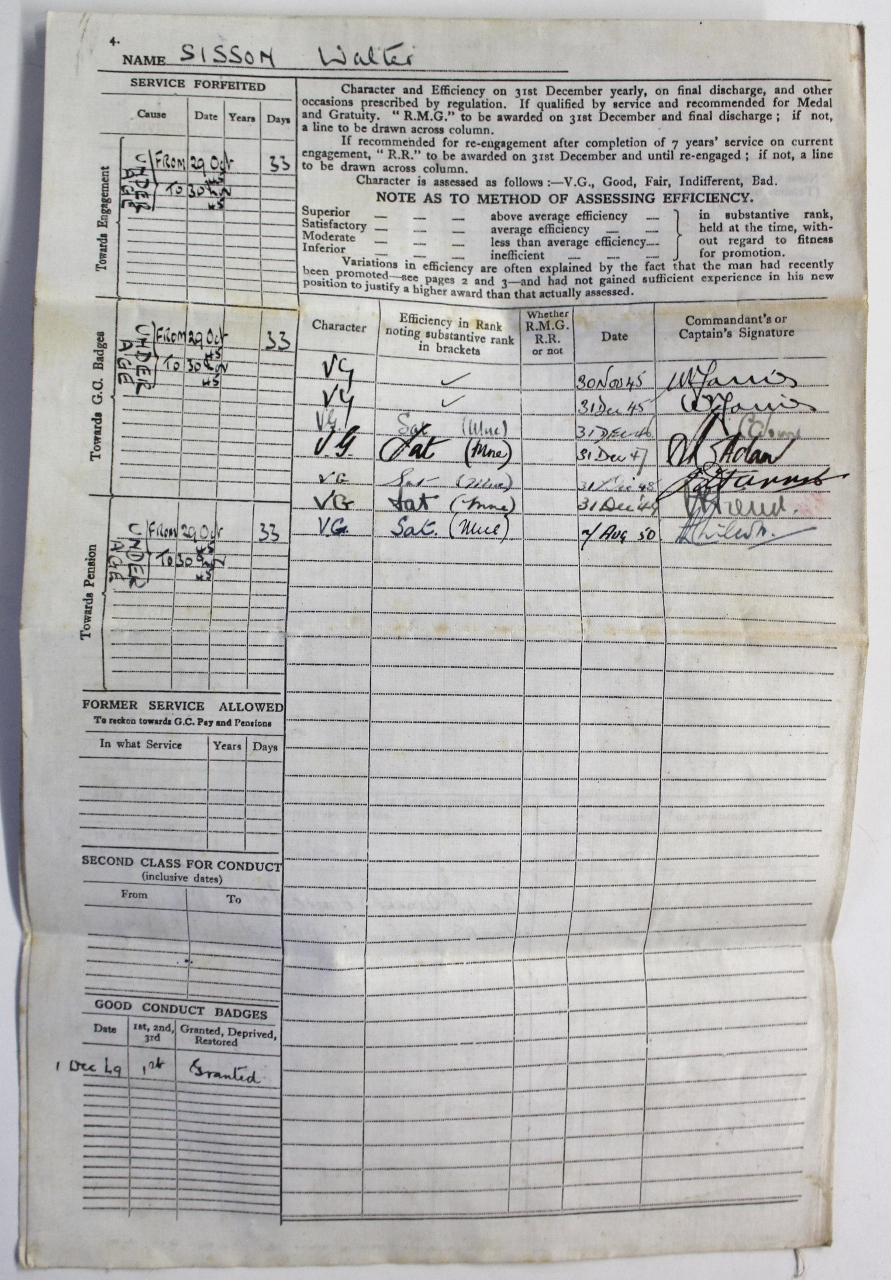 4.
NAME SISSON Walter
SERVICE FORFEITED
Cause Date Years Days
Towards Engagement
UNDER AGE
FROM 29 Oct 45 33
TO 30 Nov 45
Character and Efficiency on 31st December yearly, on final discharge, and other
occasions prescribed by regulation. If qualified by service and recommended for Medal
and Gratuity. "R.M.G." to be awarded on 31st December and final discharge; if not,
a line to be drawn across column.
If recommended for re-engagement after completion of 7 years' service on current
engagement, "R.R." to be awarded on 31st December and until re-engaged; if not, a line
to be drawn across column.
Character is assessed as follows:—V.G., Good, Fair, Indifferent, Bad.
NOTE AS TO METHOD OF ASSESSING EFFICIENCY.
Superior — — — above average efficiency — in substantive rank,
Satisfactory — — — average efficiency — — held at the time, with-
Moderate — — — less than average efficiency— out regard to fitness
Inferior — — — inefficient — — — for promotion.
Variations in efficiency are often explained by the fact that the man had recently
been promoted—see pages 2 and 3—and had not gained sufficient experience in his new
position to justify a higher award than that actually assessed.
Towards G.C. Badges
UNDER AGE
FROM 29 Oct 45 33
TO 30 Nov 45
Towards Pension
UNDER AGE
FROM 29 Oct 45 33
TO 30 Nov 45
Character
Efficiency in Rank
noting substantive rank
in brackets
Whether
R.M.G.
R.R.
or not
Date
Commandant's or
Captain's Signature
VG ✓ 30 Nov 45
VG ✓ 31 Dec 45
VG Sat (Mne) 31 DEC 46
VG Sat (Mne) 31 Dec 47
VG Sat (Mne) 31 Dec 48
VG Sat (Mne) 31 Dec 49
VG Sat. (Mne) 7 AUG 50
FORMER SERVICE ALLOWED
To reckon towards G.C. Pay and Pensions
In what Service Years Days
SECOND CLASS FOR CONDUCT
(inclusive dates)
From To
GOOD CONDUCT BADGES
Date 1st, 2nd, 3rd Granted, Deprived, Restored
1 Dec 49 1st Granted